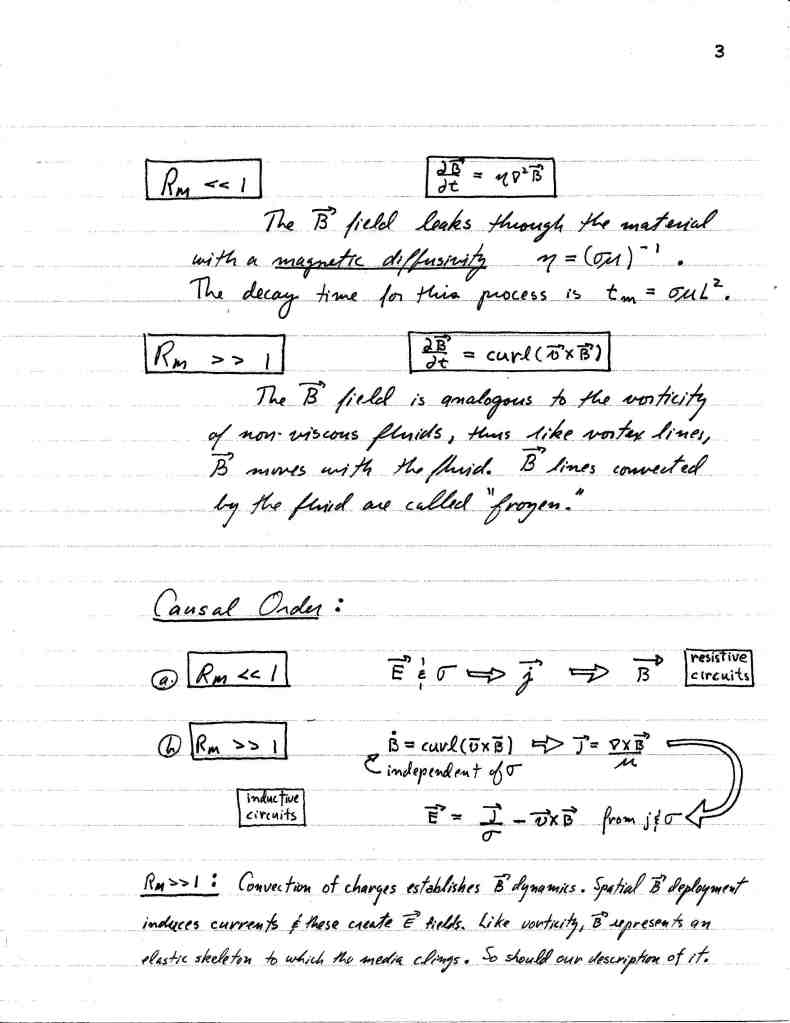 3
R_m << 1    ∂B⃗/∂t = η∇²B⃗
The B⃗ field leaks through the material
with a magnetic diffusivity η = (σμ)⁻¹.
The decay time for this process is t_m = σμL².
R_m >> 1    ∂B⃗/∂t = curl(v⃗×B⃗)
The B⃗ field is analogous to the vorticity
of non-viscous fluids, thus like vortex lines,
B⃗ moves with the fluid. B⃗ lines convected
by the fluid are called "frozen."
Causal Order:
a. R_m << 1    E⃗ & σ ⇒ j⃗ ⇒ B⃗    resistive
circuits
b. R_m >> 1    Ḃ = curl(v̄×B̄) ⇒ J⃗ = ∇×B⃗/μ
independent of σ
inductive
circuits
E⃗ = J⃗/σ − v⃗×B⃗ from j & σ
R_m>>1: Convection of charges establishes B⃗ dynamics. Spatial B⃗ deployment
induces currents & these create E⃗ fields. Like vorticity, B⃗ represents an
elastic skeleton to which the media clings. So should our description of it.